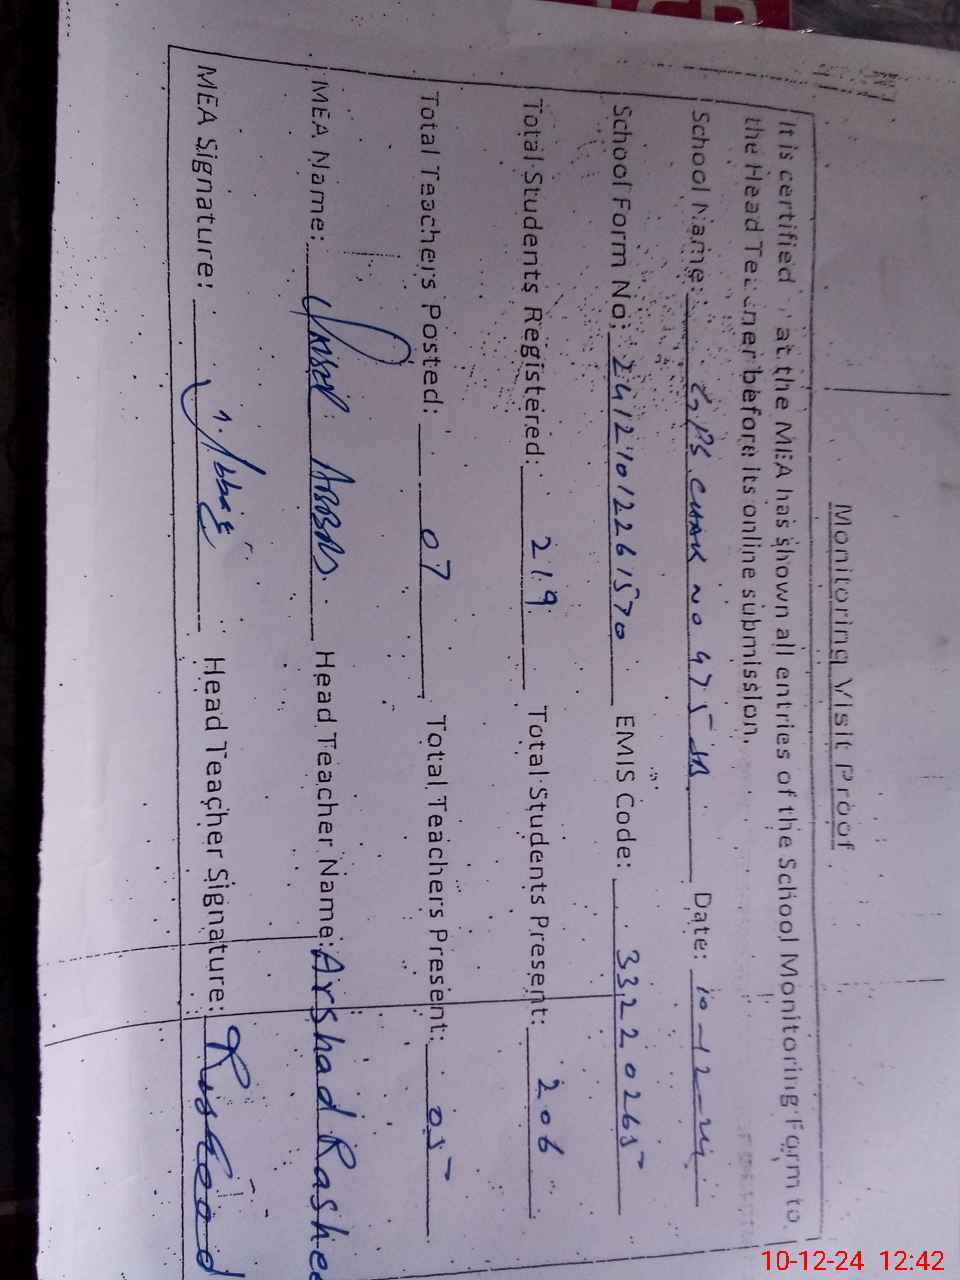 Monitoring Visit Proof
It is certified at the MEA has shown all entries of the School Monitoring Form to
the Head Teacher before its online submission.
School Name: GPS CHAK NO 475 JB Date: 10-12-24
School Form No: 2412 12261570 EMIS Code: 33220265
Total Students Registered: 219 Total Students Present: 206
Total Teachers Posted: 07 Total Teachers Present: 05
MEA Name: Abbas Head Teacher Name: Arshad Rashee
MEA Signature: Abbas Head Teacher Signature:
10-12-24 12:42